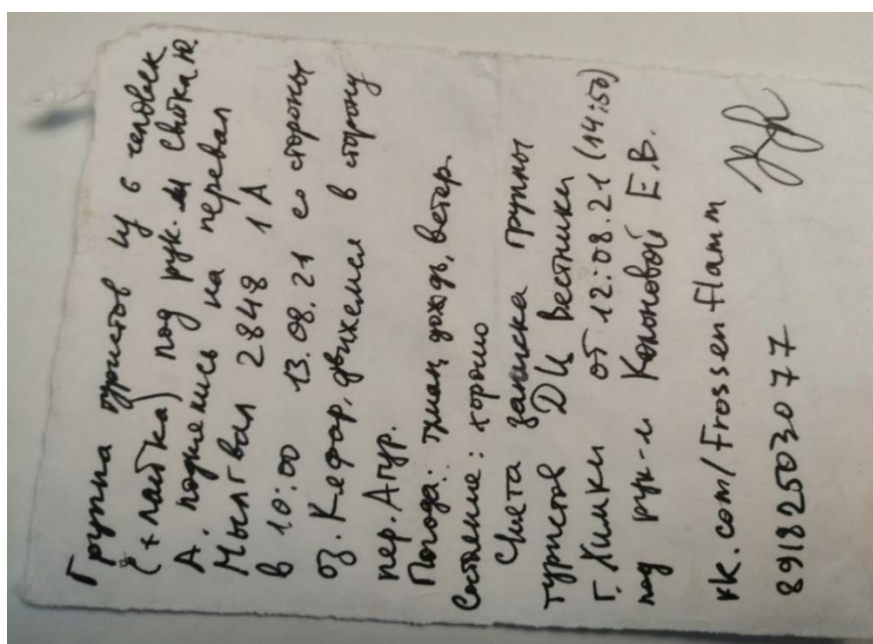 Группа туристов из 6 человек
(+ лайка) под рук. м Свитка Ю.
А. поднялись на перевал
Мылгвал 2848 1А
в 10:00 13.08.21 со стороны
оз. Кяфар, движемся в сторону
пер. Агур.
Погода: туман, дождь, ветер.
Состояние: хорошо
Снята записка группы
туристов ДЦ Вестники
г. Химки от 12.08.21 (14:50)
под рук-м Кононовой Е.В.
vk.com/Frossenflamm
89182503077